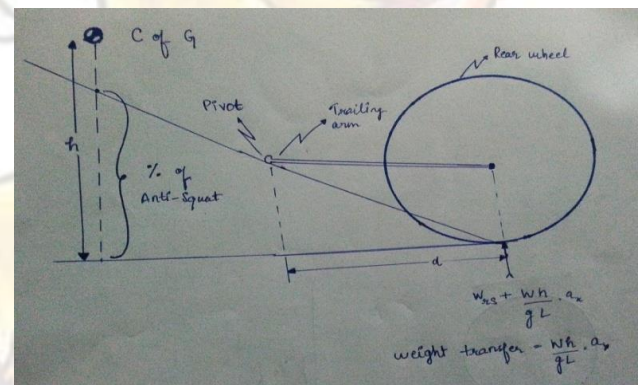 C of G
Rear wheel
Pivot
Trailing
arm
h
% of
Anti-Squat
d
Wrs + Wh/gL . ax
weight transfer - Wh/gL . ax